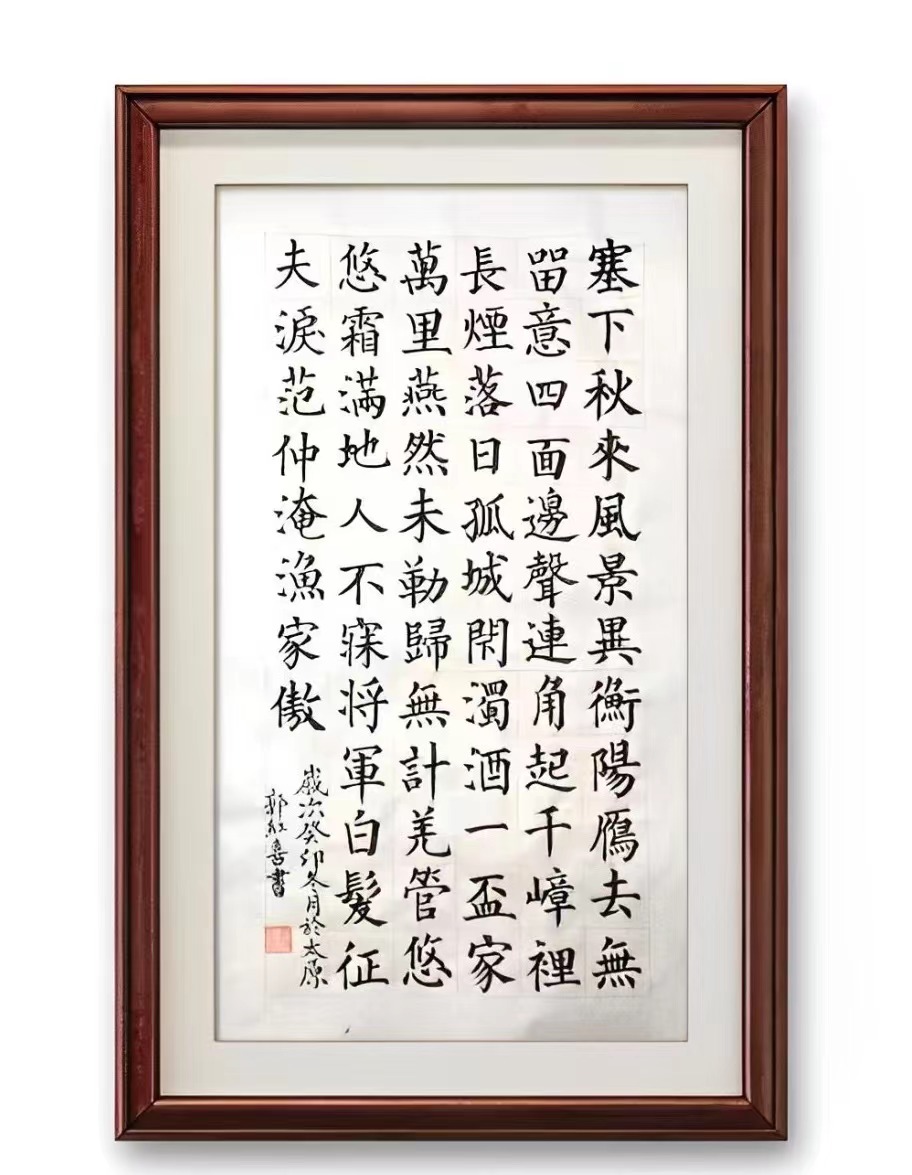 塞下秋來風景異衡陽鴈去無
畱意四面邊聲連角起千嶂裡
長煙落日孤城閇濁酒一盃家
萬里燕然未勒歸無計羌管悠
悠霜滿地人不寐将軍白髮征
夫淚范仲淹漁家傲
歲次癸卯冬月於太原
郭紅喜書